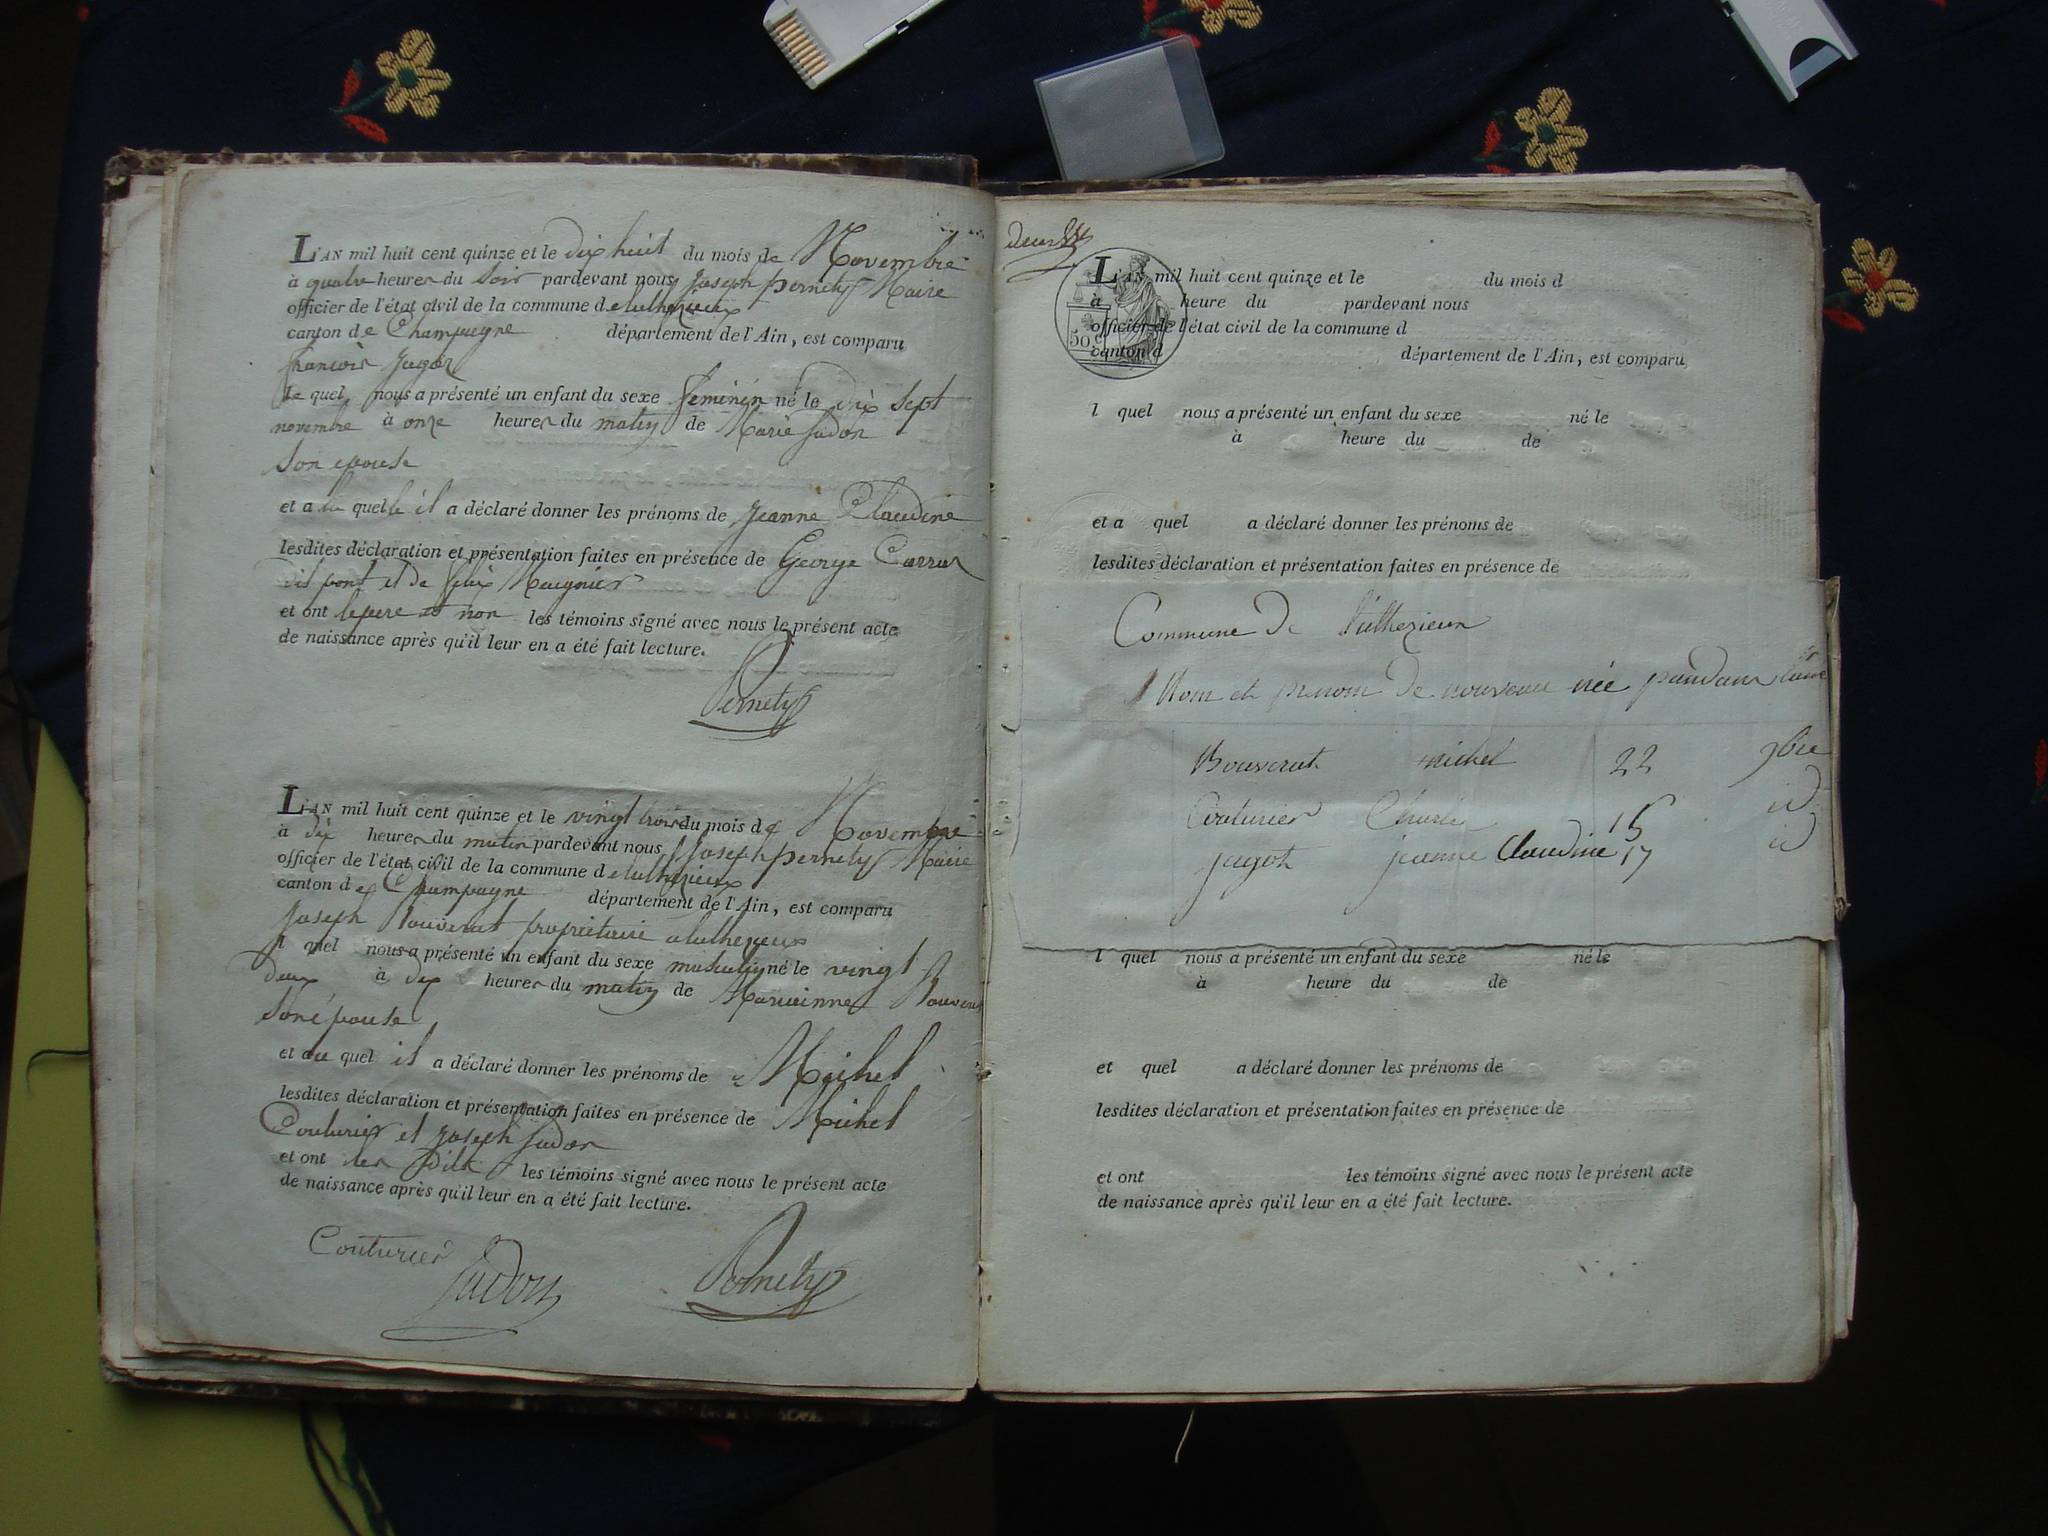 L'AN mil huit cent quinze et le dix huit du mois de Novembre
à quatre heures du soir pardevant nous Joseph pernety Maire
officier de l'état civil de la commune de luthezieux
canton de Champagne département de l'Ain, est comparu
francois Jugot
le quel nous a présenté un enfant du sexe feminin né le dix sept
novembre à onze heures du matin de Marie Judon
son epouse
et a la quelle il a déclaré donner les prénoms de Jeanne Claudine
lesdites déclaration et présentation faites en présence de George Carrier
dit pont et de felix
et ont le pere et non les témoins signé avec nous le présent acte
de naissance après qu'il leur en a été fait lecture.
Pernety
L'AN mil huit cent quinze et le vingt trois du mois de Novembre
à dix heures du matin pardevant nous Joseph pernety Maire
officier de l'état civil de la commune de luthezieux
canton de Champagne département de l'Ain, est comparu
Joseph Bouverat proprietaire a luthezieux
l quel nous a présenté un enfant du sexe masculin né le vingt
deux à dix heures du matin de Marieinne
son épouse
et au quel il a déclaré donner les prénoms de Michel
lesdites déclaration et présentation faites en présence de Michel
Couturier et Joseph Judon
et ont les dits les témoins signé avec nous le présent acte
de naissance après qu'il leur en a été fait lecture.
Couturier Judon Pernety
L'AN mil huit cent quinze et le du mois d
à heure du pardevant nous
officier de l'état civil de la commune d
50 c
canton d département de l'Ain, est comparu
l quel nous a présenté un enfant du sexe né le
à heure du de
et a quel a déclaré donner les prénoms de
lesdites déclaration et présentation faites en présence de
Commune de luthezieux
Nom et prenom de nouveau née pandant
Bouverat michel 22 9bre
Couturier Charles 15 id
jugot jeanne Claudine 17 id
l quel nous a présenté un enfant du sexe né le
à heure du de
et quel a déclaré donner les prénoms de
lesdites déclaration et présentation faites en présence de
et ont les témoins signé avec nous le présent acte
de naissance après qu'il leur en a été fait lecture.